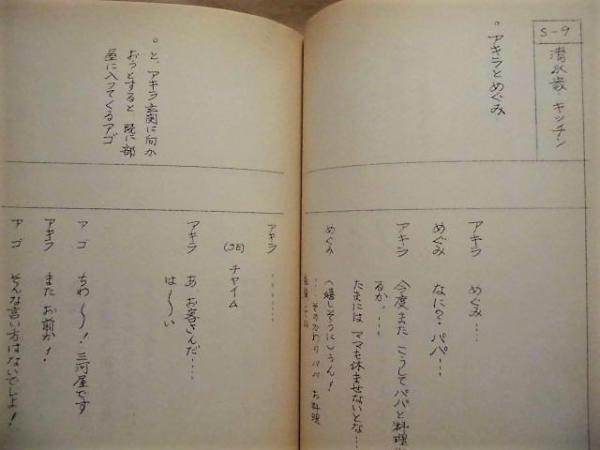 S-9
清水家・キッチン
。アキラとめぐみ
アキラ めぐみ…
めぐみ なに?・パパ…
アキラ 今度また こうしてパパと料理
るか。…
たまには ママも休ませないとな…
めぐみ (嬉しそうに)うん!
… そのかわり パパ お料理
アキラ ……
(SE) チャイム
アキラ あ お客さんだ…
は〜い
。と、アキラ玄関に向か
おうとすると 既に部
屋に入ってくるアゴ
アゴ ちわ〜! 三河屋です
アキラ また お前か!
アゴ そんな言い方はないでしょ!